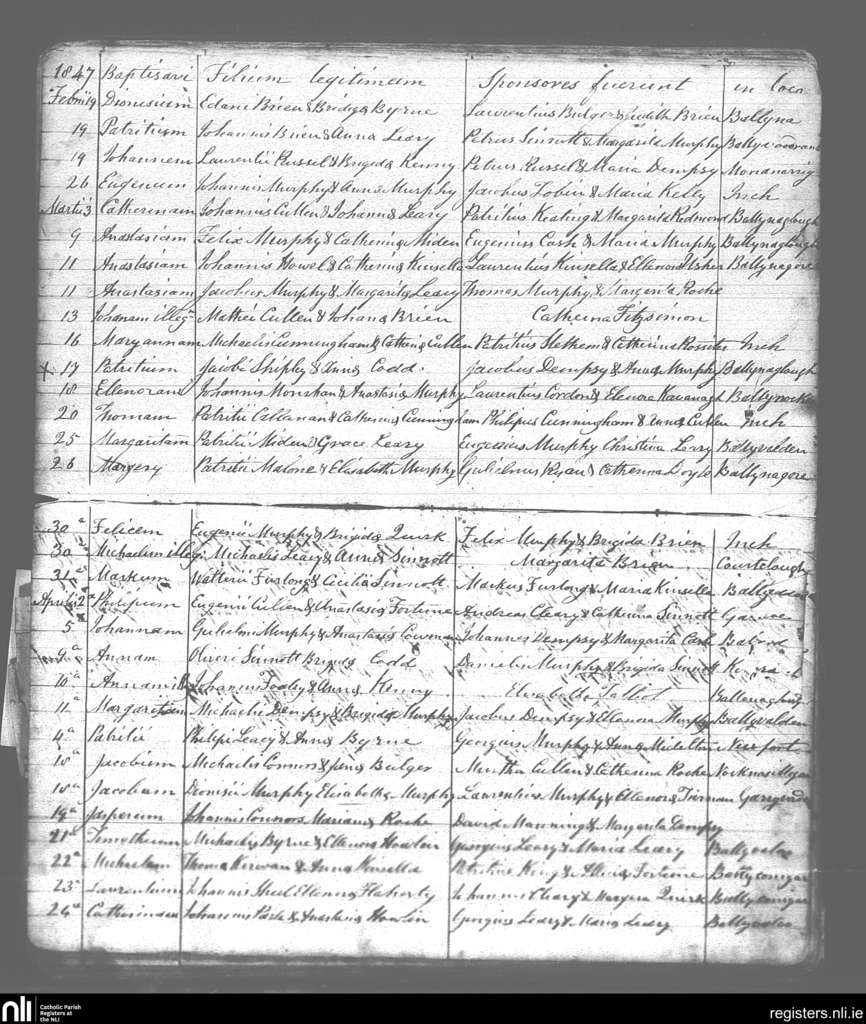 1847 Baptisavi Filium legitimum Sponsores fuerunt in loco
Februii 19 Dionesium Edani Brien & Bridg& Byrne Laurentius Bulger & Judith Brien Ballyna
19 Patritium Johannis Brien & Anna Leary Petrus Sinnott & Margarita Murphy
19 Johannem Laurentii Russel & Brigida Kenny Petrus Russel & Maria Dempsy Monanarrig
26 Eugenium Johannis Murphy & Anna Murphy Jacobus Tobin & Maria Kelly Inch
Martii 3 Catherinam Johannis Cullen & Johanna Leary Patritius Keating & Margarita Redmond Ballynaglough
9 Anastasiam Felix Murphy & Catherina Miden Eugenius Cash & Maria Murphy Ballynaglough
11 Anastasiam Johannis Howel & Catherina Kinsella Laurentius Kinsella & Ellenora Usher Ballynagore
11 Anastasiam Jacobus Murphy & Margarita Leary Thomas Murphy & Margarita Roche
13 Johanam illeg Mathei Cullen & Johana Brien Catherina Fitzsimon
16 Maryannam Michaelis Cunningham & Catherina Cullen Patritius & Catherina Rossiter Inch
X 17 Patritium Jacobi Shipley & Anna Codd Jacobus Dempsy & Anna Murphy Ballynaglough
18 Ellenoram Johannis Monahan & Anastasia Murphy Laurentius Cordon & Elenora Kavanagh
20 Thomam Patritii Callanan & Catherina Cunningham Philipus Cunningham & Anna Cullen Inch
25 Margaritam Patritii Miden & Grace Leary Eugenius Murphy Christina Leary Ballyvalden
26 Margery Patritii Malone & Elisabeth Murphy Gulielmus Ryan & Catherina Doyle Ballynagore
30 a Felicem Eugenii Murphy & Brigida Quirk Felix Murphy & Brigida Brien Inch
30 a Michaelem illeg Michaelis Leacy & Anna Sinnott Margarita Brien Courtclough
31 a Markum Walterii Furlong & Cecilia Sinnott Markus Furlong & Maria Kinsella
Aprilis 2 a Philipum Eugenii Cullen & Anastasia Fortune Andreas Cleary & Catherina Sinnott
5 a Johannam Gulielmi Murphy & Anastasia Johannes Dempsy & Margarita Cash
9 a Annam Oliveri Sinnott Brigida Codd Danielis Murphy & Brigida Sinnott
10 a Annam ill Johannis Tooley & Anna Kenny Elisabetha Talbot
11 a Margaritam Michaelis Dempsy & Brigida Murphy Jacobus Dempsy & Ellenora Murphy Ballyvalden
4 a Patritii Philipi Leacy & Anna Byrne Georgius Murphy & Anna
18 a Jacobum Michaelis Connors & Bulger Murtha Cullen & Catherina Roche
18 a Jacobum Dionisii Murphy Elisabetha Murphy Laurentius Murphy & Ellenora
19 a Johannis Connors Mariana Roche David Manning & Margarita Dempsy
21 a Timotheum Michaelis Byrne & Ellenora Howlin Georgius Leary & Maria Leary
22 a Thoma Kirwan & Anna Kinsella Patritius King & Alicia Fortune
23 a Laurentium Johannis Ellenora Flaherty Johannis Cleary & Quirk
24 a Catherinam Johannis & Anastasia Howlin Georgius Leary & Maria Leary
nli Catholic Parish
Registers at
the NLI
registers.nli.ie